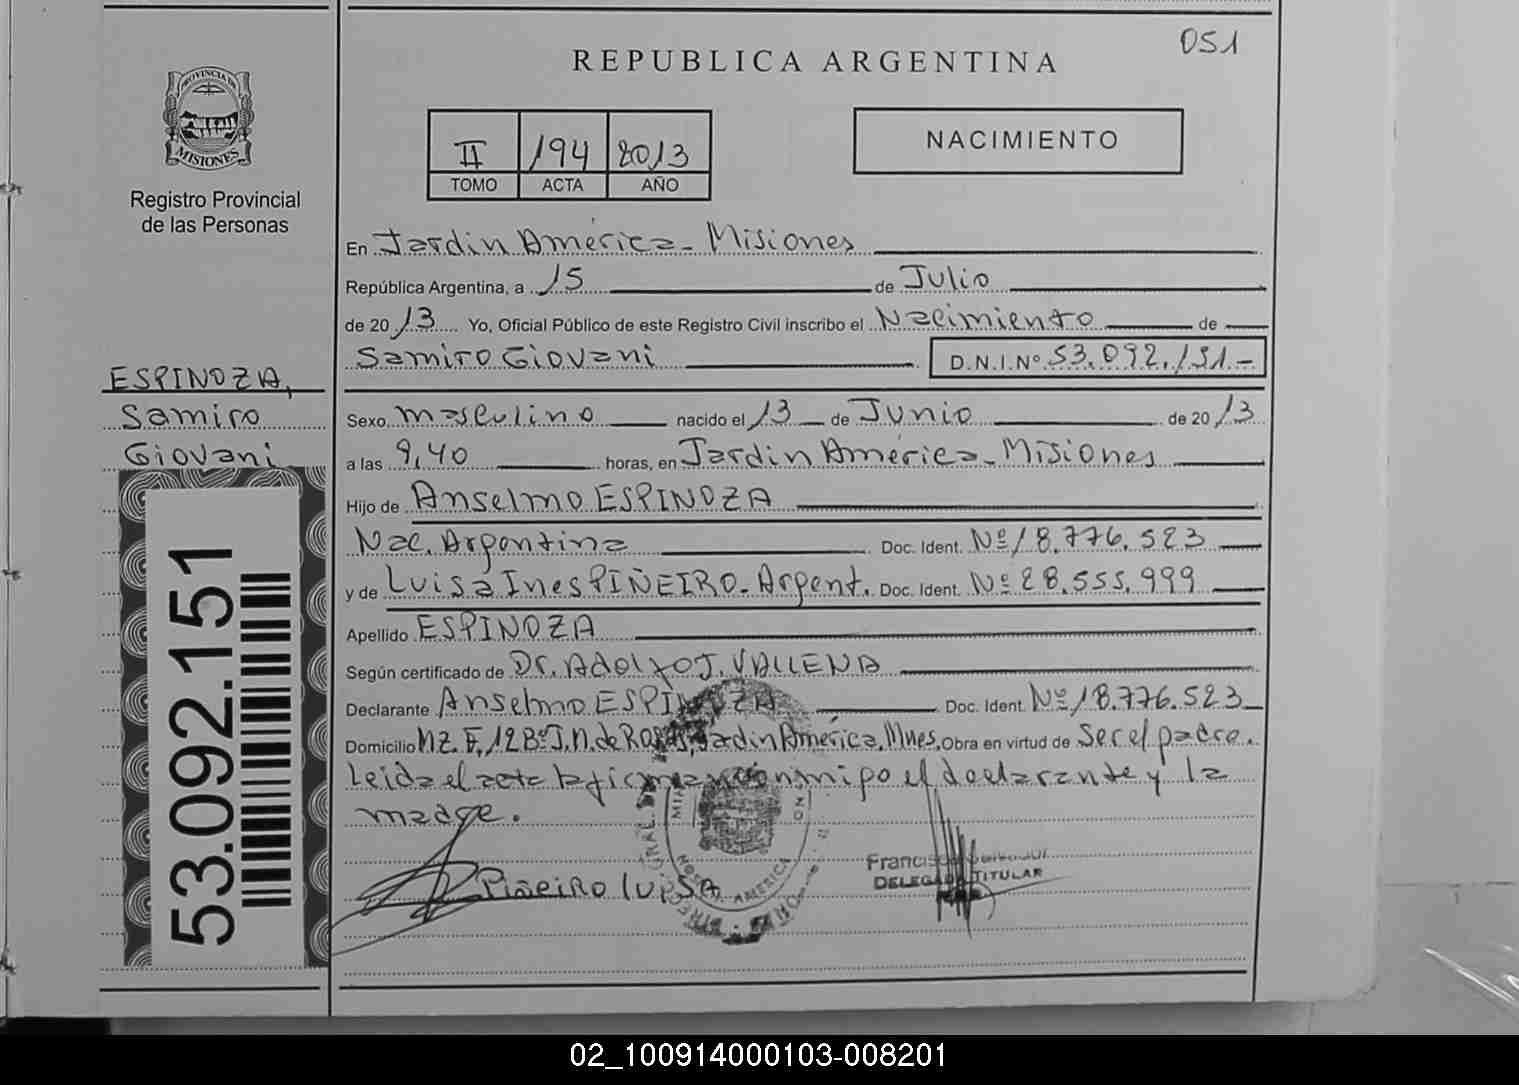 051
REPUBLICA ARGENTINA
PROVINCIA DE
MISIONES
Registro Provincial
de las Personas
II 194 2013
TOMO ACTA AÑO
NACIMIENTO
En Jardin América - Misiones
República Argentina, a 15 de Julio
de 2013 Yo, Oficial Público de este Registro Civil inscribo el Nacimiento de
Samiro Giovani D.N.I.Nº 53.092.151.-
ESPINOZA,
Samiro
Giovani
53.092.151
Sexo masculino nacido el 13 de Junio de 2013
a las 9,40 horas, en Jardin América - Misiones
Hijo de Anselmo ESPINOZA
Nac. Argentina Doc. Ident. Nº 18.776.523
y de Luisa Ines PIÑEIRO - Argent. Doc. Ident. Nº 28.555.999
Apellido ESPINOZA
Según certificado de Dr. Adolfo J. VALLENA
Declarante Anselmo ESPINOZA Doc. Ident. Nº 18.776.523
Domicilio MZ. F, 12 Bº J.M. de Rosas, Jardin América, Mnes. Obra en virtud de Ser el padre.
Leida el acta la firman conmigo el declarante y la
madre.
Piñeiro luisa
Francisco Salvador
DELEGADO TITULAR
AMERICA
02_100914000103-008201